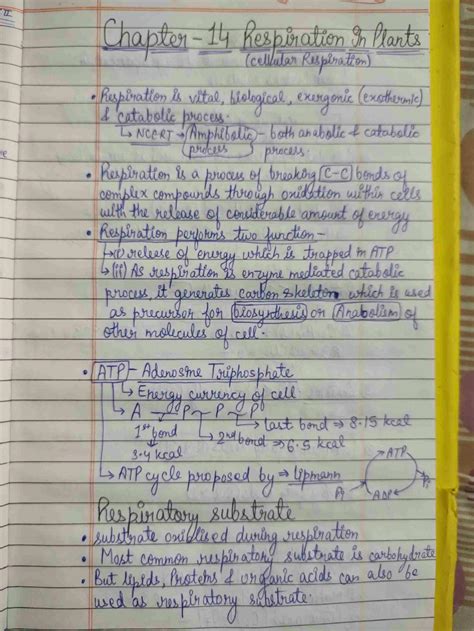 Chapter-14 Respiration In Plants
(cellular Respiration)
• Respiration is vital, biological, exergonic (exothermic)
& catabolic process.
↳ NCERT → Amphibolic - both anabolic & catabolic
process process.
• Respiration is a process of breaking C-C bonds of
complex compounds through oxidation within cells
with the release of considerable amount of energy
• Respiration performs two function -
↳ (i) release of energy which is trapped in ATP
↳ (ii) As respiration is enzyme mediated catabolic
process, it generates carbon skeleton which is used
as precursor for biosynthesis or Anabolism of
other molecules of cell.
• ATP - Adenosine Triphosphate
↳ Energy currency of cell.
↳ A - P ~ P ~ P
last bond ⇒ 8.15 kcal
1st bond 2nd bond ⇒ 6.5 kcal
3.4 kcal
↳ ATP cycle proposed by ⇒ Lipmann
ATP
Pi ADP Pi
Respiratory substrate
• substrate oxidised during respiration
• Most common respiratory substrate is carbohydrate
• But lipids, Proteins & organic acids can also be
used as respiratory substrate.